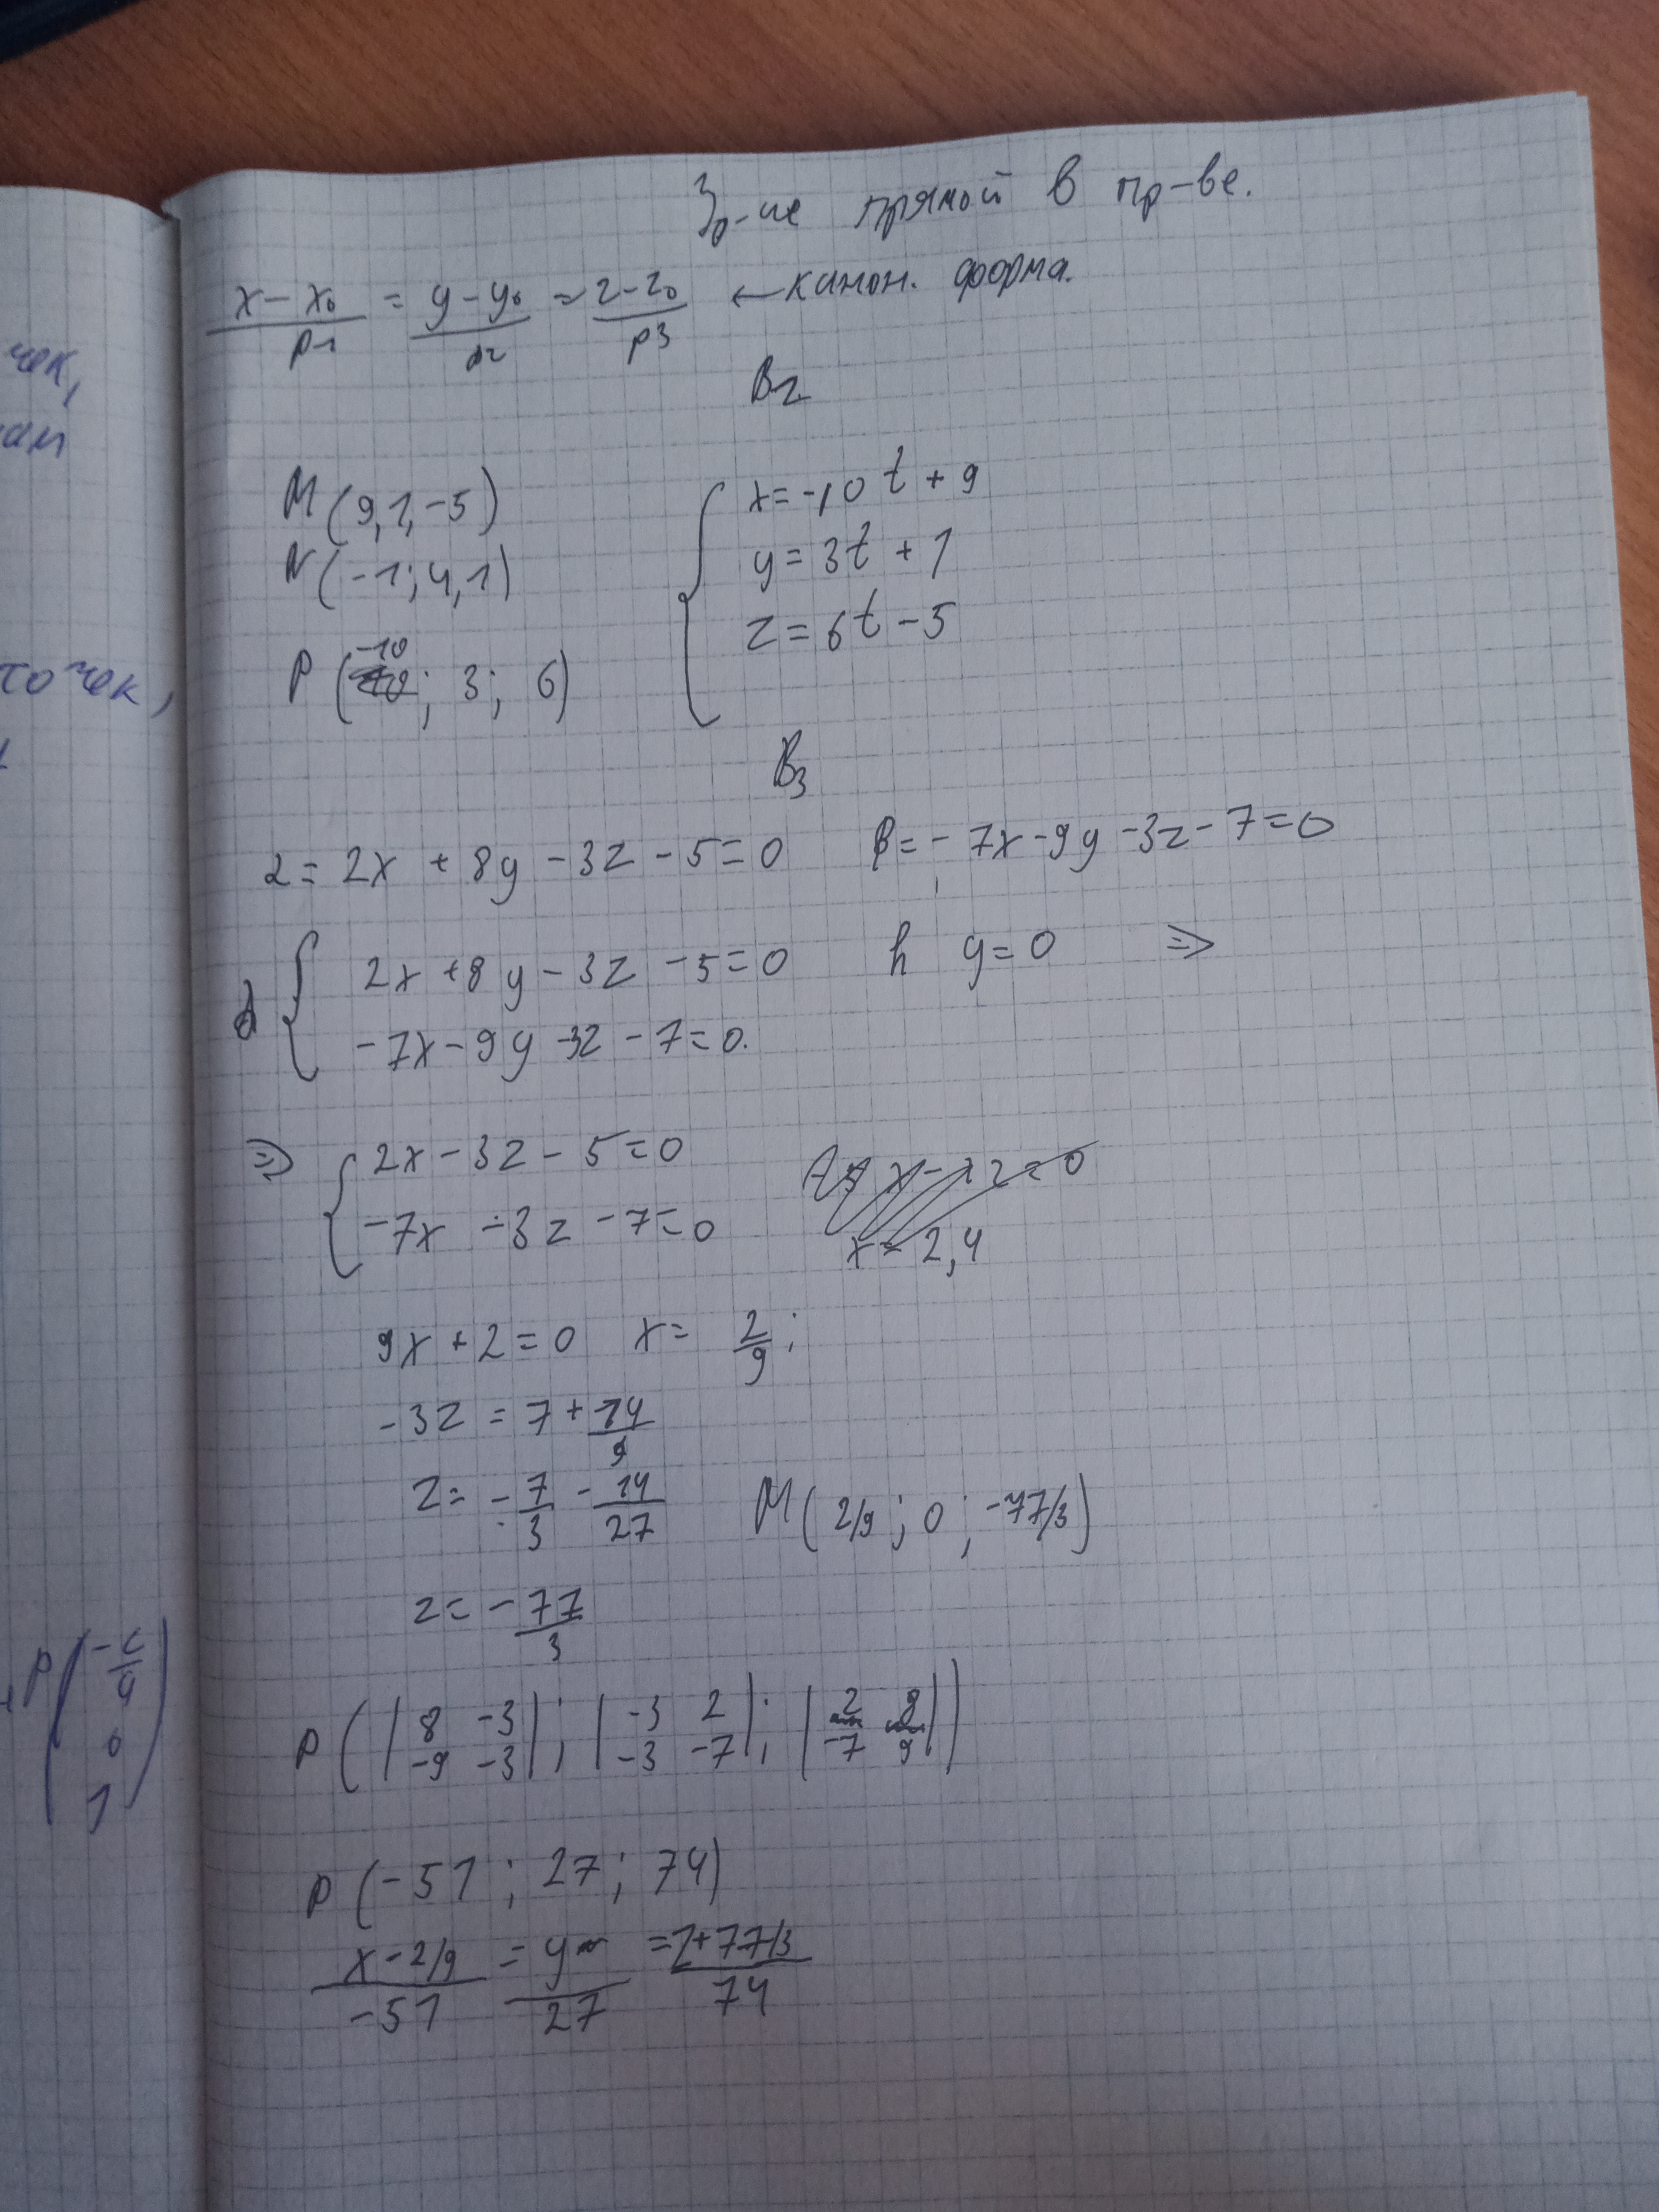 Ур-ие прямой в пр-ве.
x - x₀ / p1 = y - y₀ / p2 = z - z₀ / p3 ← канон. форма.
B2
M (9, 1, -5)
N (-1; 4, 1)
P (-10; 3; 6)
{ x = -10t + 9
y = 3t + 1
z = 6t - 5
B3
α = 2x + 8y - 3z - 5 = 0 β = - 7x - 9y - 3z - 7 = 0
{ 2x + 8y - 3z - 5 = 0 y = 0 ⇒
-7x - 9y - 3z - 7 = 0.
⇒ { 2x - 3z - 5 = 0
-7x - 3z - 7 = 0
x = 2,4
9x + 2 = 0 x = 2/9;
-3z = 7 + 14/9
z = -7/3 - 14/27 M (2/9; 0; -77/3)
z = -77/3
P (|8 -3; -9 -3|; |-3 2; -3 -7|; |2 8; -7 9|)
P (-51; 27; 74)
x - 2/9 / -51 = y / 27 = z + 77/3 / 74
чек,
ам
точек,
P (
0
1 )